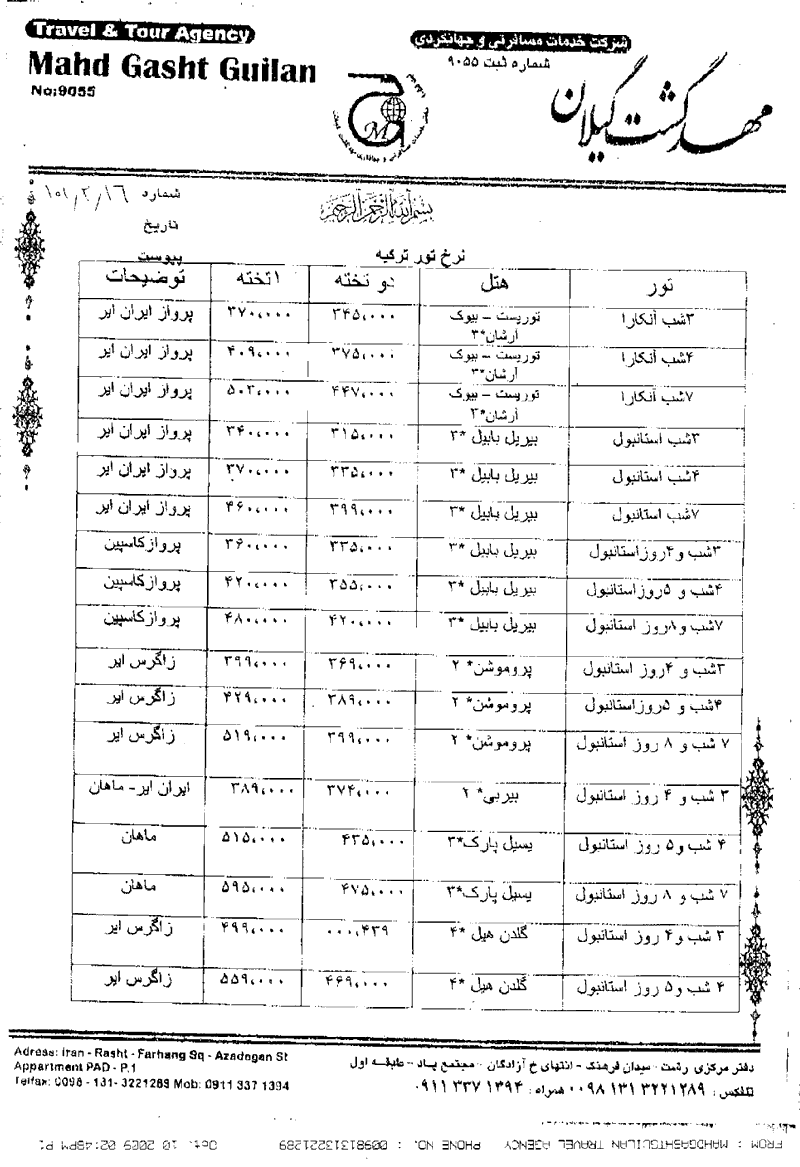 Travel & Tour Agency
Mahd Gasht Guilan
No:9055
شرکت خدمات مسافرتی و جهانگردی
شماره ثبت ۹۰۵۵
مهد گشت گیلان
شماره
تاریخ
پیوست
بسم الله الرحمن الرحیم
نرخ تور ترکیه
تور هتل دو تخته ۱تخته توضیحات
۳شب آنکارا توریست – بیوک آرشان*۳ ۳۴۵،۰۰۰ ۳۷۰،۰۰۰ پرواز ایران ایر
۴شب آنکارا توریست – بیوک آرشان*۳ ۳۷۵،۰۰۰ ۴۰۹،۰۰۰ پرواز ایران ایر
۷شب آنکارا توریست – بیوک آرشان*۳ ۴۴۷،۰۰۰ ۵۰۳،۰۰۰ پرواز ایران ایر
۳شب استانبول بیریل بابیل *۳ ۳۱۵،۰۰۰ ۳۴۰،۰۰۰ پرواز ایران ایر
۴شب استانبول بیریل بابیل *۳ ۳۳۵،۰۰۰ ۳۷۰،۰۰۰ پرواز ایران ایر
۷شب استانبول بیریل بابیل *۳ ۳۹۹،۰۰۰ ۴۶۰،۰۰۰ پرواز ایران ایر
۳شب و۴روزاستانبول بیریل بابیل *۳ ۳۳۵،۰۰۰ ۳۶۰،۰۰۰ پروازکاسپین
۴شب و ۵روزاستانبول بیریل بابیل *۳ ۳۵۵،۰۰۰ ۴۲۰،۰۰۰ پروازکاسپین
۷شب و۸روز استانبول بیریل بابیل *۳ ۴۲۰،۰۰۰ ۴۸۰،۰۰۰ پروازکاسپین
۳شب و ۴روز استانبول پروموشن* ۲ ۳۶۹،۰۰۰ ۳۹۹،۰۰۰ زاگرس ایر
۴شب و ۵روزاستانبول پروموشن* ۲ ۳۸۹،۰۰۰ ۴۲۹،۰۰۰ زاگرس ایر
۷ شب و ۸ روز استانبول پروموشن* ۲ ۳۹۹،۰۰۰ ۵۱۹،۰۰۰ زاگرس ایر
۳ شب و ۴ روز استانبول بیربی* ۲ ۳۷۴،۰۰۰ ۳۸۹،۰۰۰ ایران ایر- ماهان
۴ شب و۵ روز استانبول یسیل پارک*۳ ۴۳۵،۰۰۰ ۵۱۵،۰۰۰ ماهان
۷ شب و ۸ روز استانبول یسیل پارک*۳ ۴۷۵،۰۰۰ ۵۹۵،۰۰۰ ماهان
۳ شب و۴ روز استانبول گلدن هیل *۴ ۰۰۰،۴۳۹ ۴۹۹،۰۰۰ زاگرس ایر
۴ شب و۵ روز استانبول گلدن هیل *۴ ۴۶۹،۰۰۰ ۵۵۹،۰۰۰ زاگرس ایر
Adress: Iran - Rasht - Farhang Sq - Azadegan St
Appartment PAD - P.1
Telfax: 0098 - 131- 3221289 Mob: 0911 337 1394
دفتر مرکزی رشت - میدان فرهنگ - انتهای خ آزادگان - مجتمع پاد - طبقه اول
تلفکس : ۳۲۲۱۲۸۹ ۱۳۱ ۰۰۹۸ همراه : ۱۳۹۴ ۳۳۷ ۰۹۱۱
FROM : MAHDGASHTGUILAN TRAVEL AGENCY PHONE NO. : 00981313221289 Oct. 10 2009 02:48PM P1